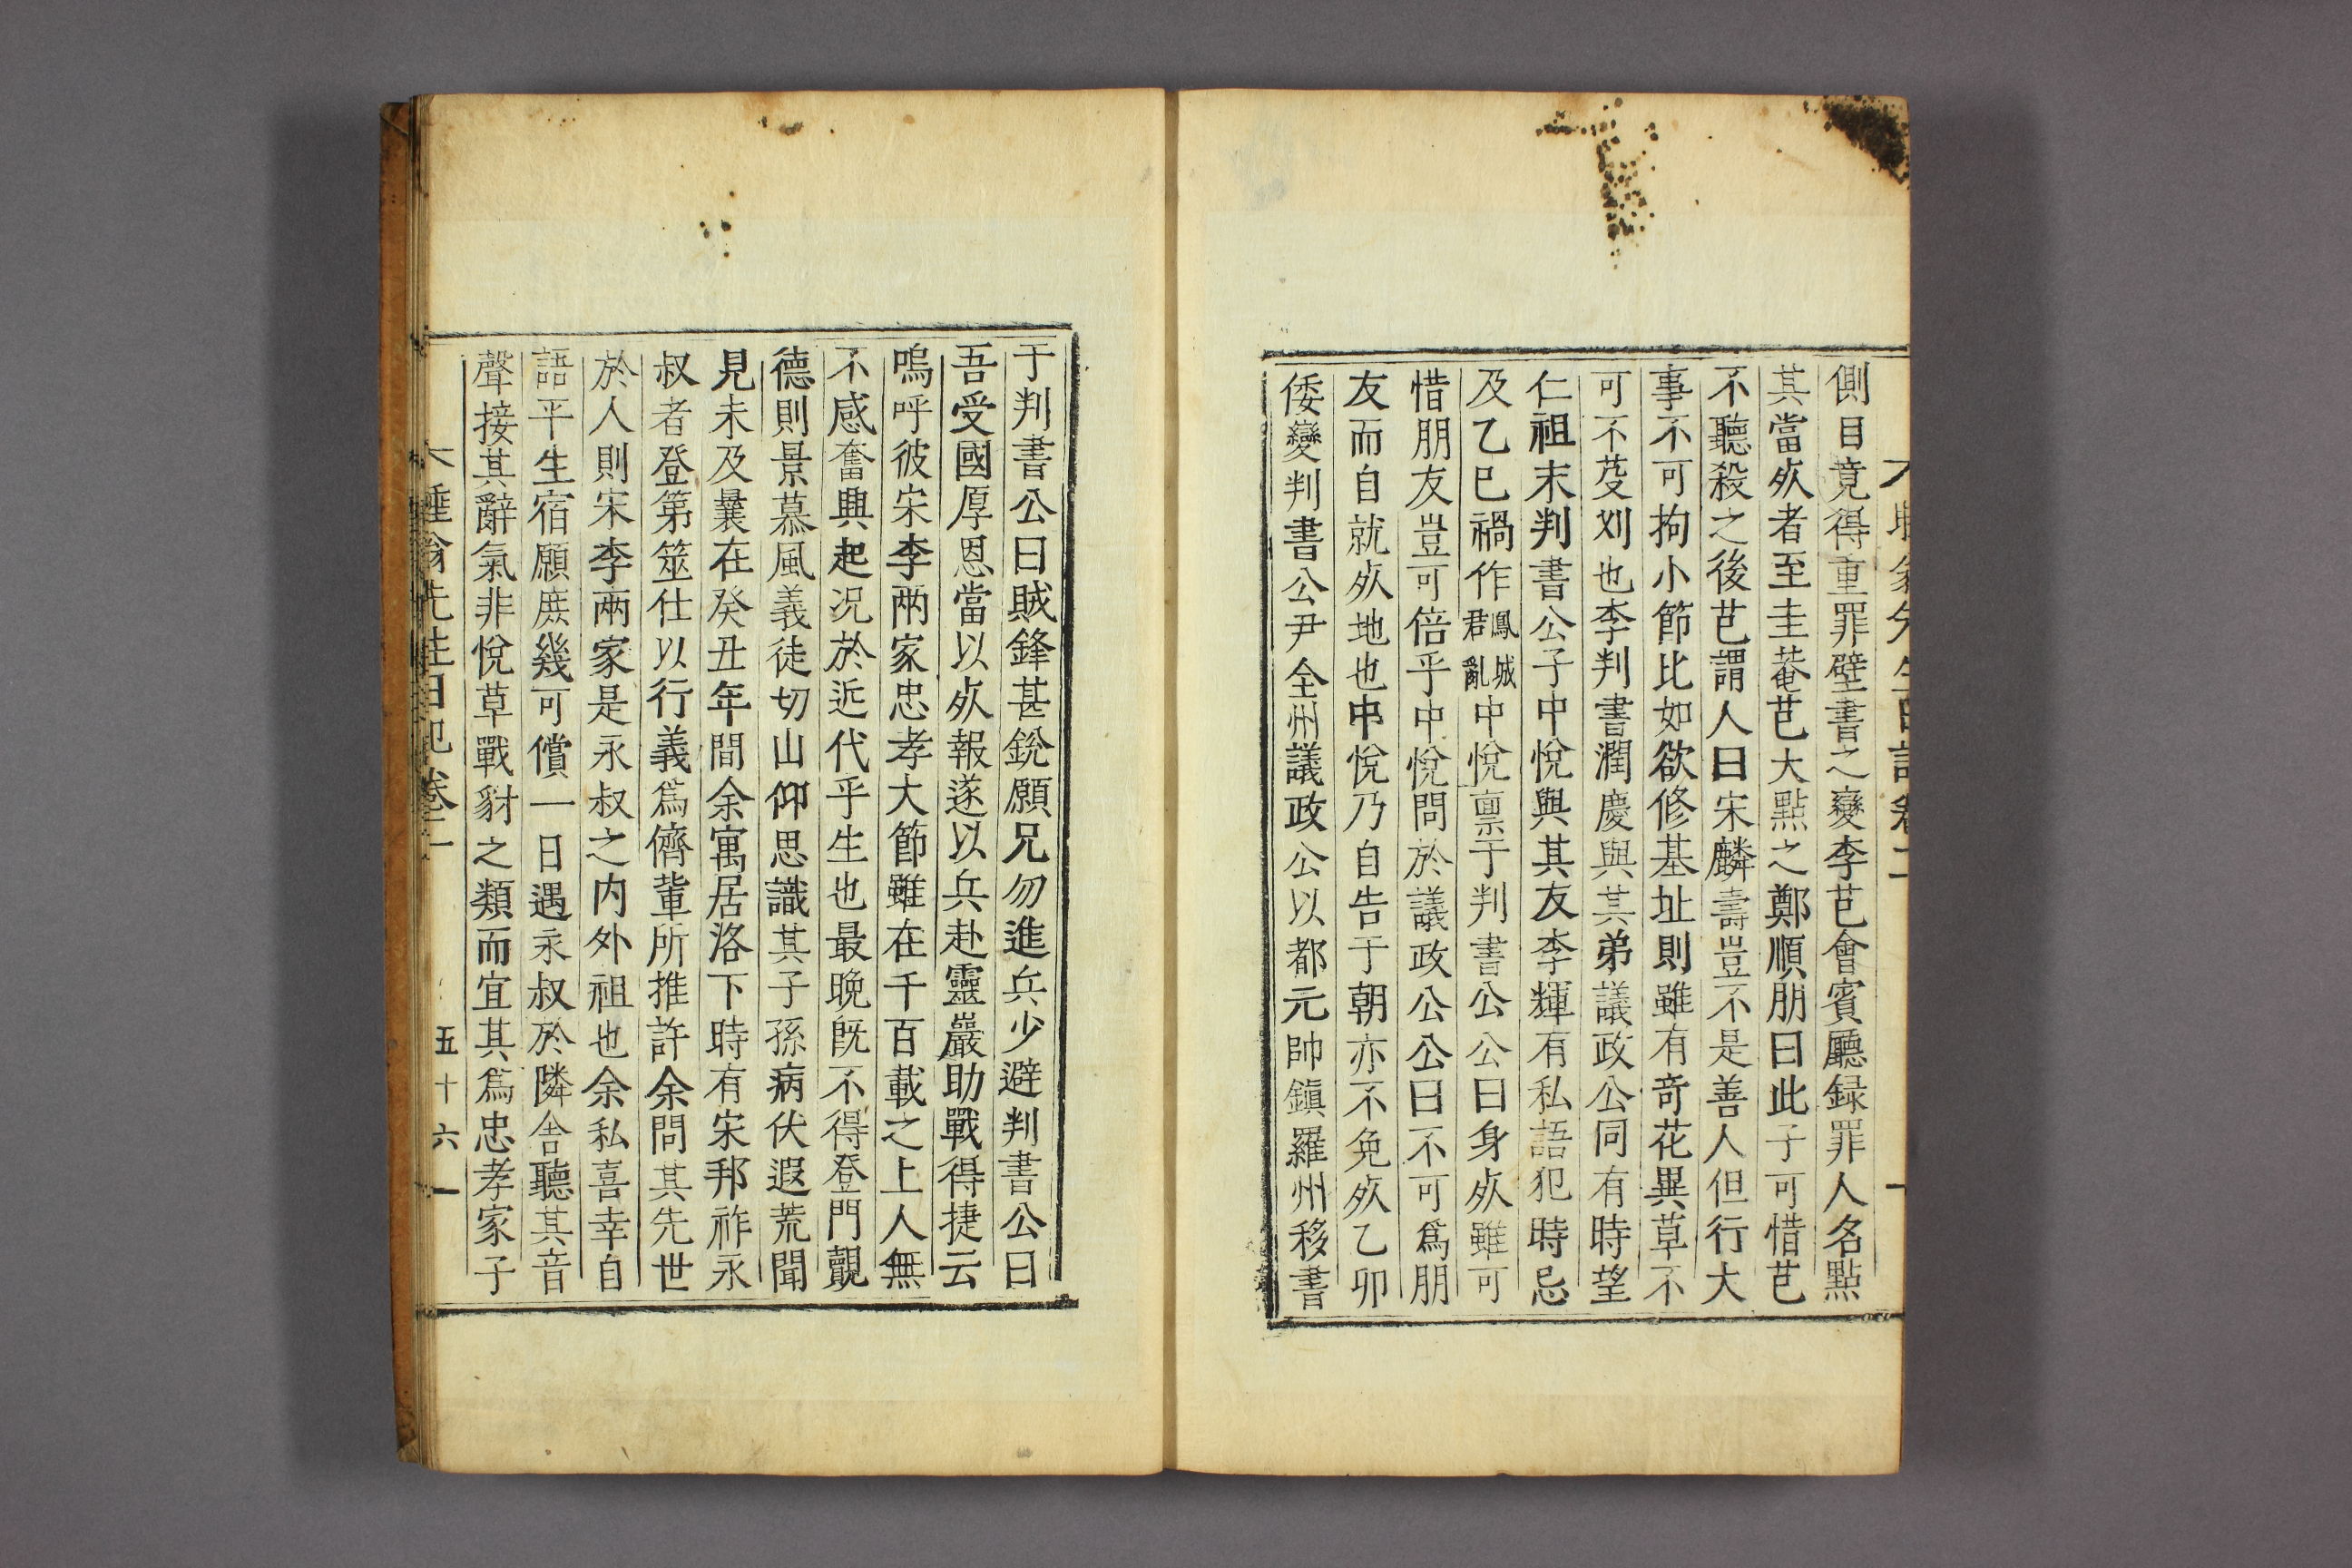 側目竟得重罪壁書之變李芑會賓廳録罪人名點
其當死者至圭菴芑大點之鄭順朋曰此子可惜芑
不聽殺之後芑謂人曰宋麟壽豈不是善人但行大
事不可拘小節比如欲修基址則雖有奇花異草不
可不芟刈也李判書潤慶與其弟議政公同有時望
仁祖末判書公子中悅與其友李輝有私語犯時忌
及乙巳禍作鳳城君亂中悅禀于判書公公曰身死雖可
惜朋友豈可倍乎中悅問於議政公公曰不可爲朋
友而自就死地也中悅乃自告于朝亦不免死乙卯
倭變判書公尹全州議政公以都元帥鎭羅州移書
于判書公曰賊鋒甚銳願兄勿進兵少避判書公曰
吾受國厚恩當以死報遂以兵赴靈巖助戰得捷云
嗚呼彼宋李兩家忠孝大節雖在千百載之上人無
不感奮興起况於近代乎生也最晩旣不得登門覿
德則景慕風義徒切山仰思識其子孫病伏遐荒聞
見未及曩在癸丑年間余寓居洛下時有宋邦祚永
叔者登第筮仕以行義爲儕輩所推許余問其先世
於人則宋李兩家是永叔之内外祖也余私喜幸自
語平生宿願庶幾可償一日遇永叔於隣舍聽其音
聲接其辭氣非悅草戰豺之類而宜其爲忠孝家子
睡翁先生日記卷二
五十六